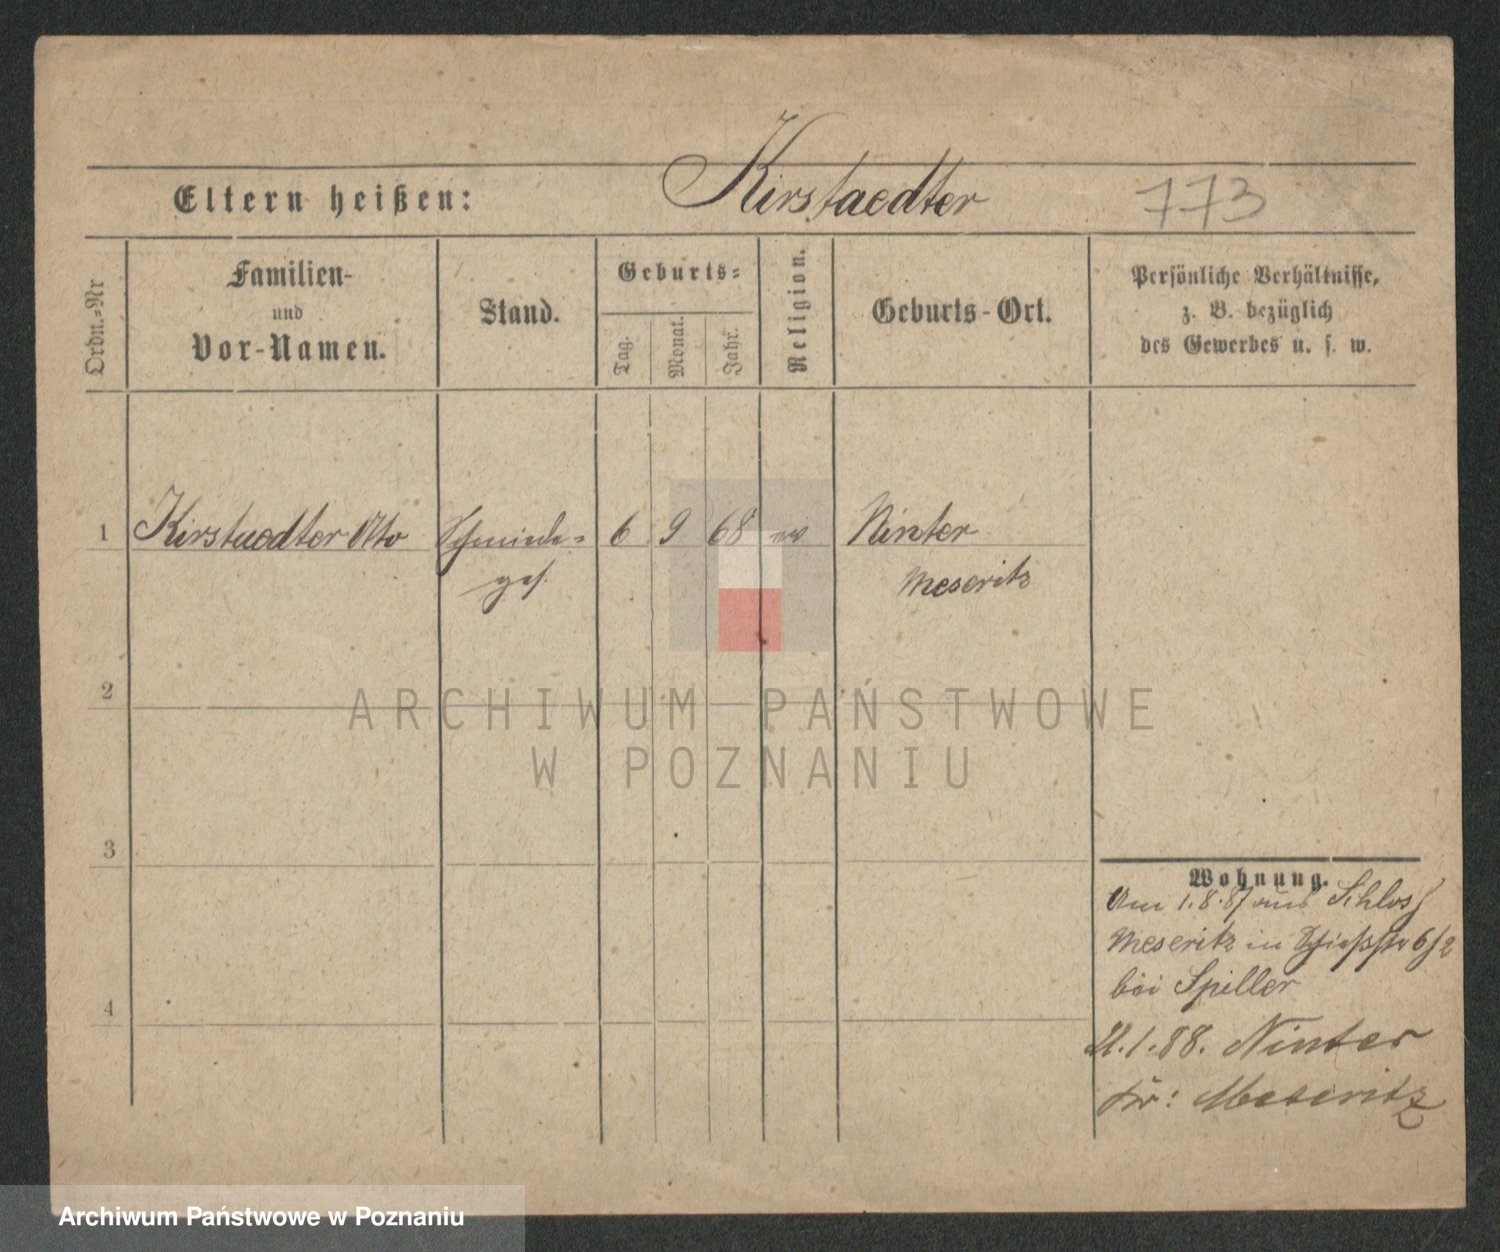 Eltern heißen: Kirstaedter 773
Ordn.-Nr
Familien-
und
Vor-Namen.
Stand.
Geburts-
Tag.
Monat.
Jahr.
Religion.
Geburts-Ort.
Persönliche Verhältnisse,
z. B. bezüglich
des Gewerbes u. s. w.
1 Kirstaedter Otto Schmiede- 6 9 68 ev Ninter
ges. Meseritz
2
ARCHIWUM PAŃSTWOWE
W POZNANIU
3
Wohnung.
Am 1.8.87 aus Schloß
Meseritz in Schießstr 6/2
bei Spiller
4
21.1.88. Ninter
Kr: Meseritz
Archiwum Państwowe w Poznaniu